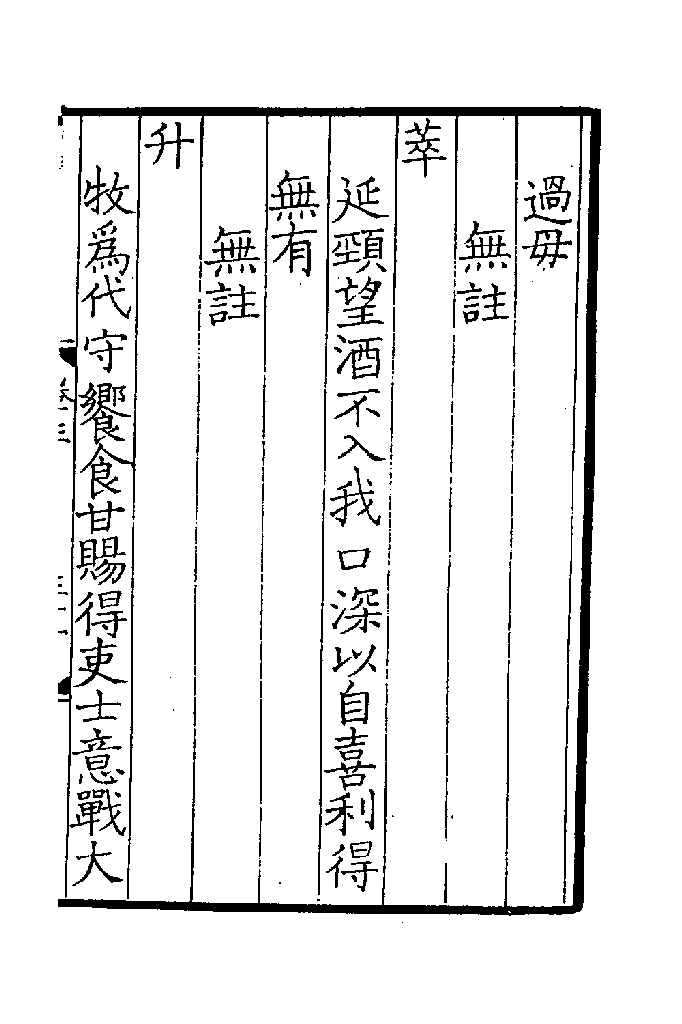 過毋
無註
萃
延頸望酒不入我口深以自喜利得
無有
無註
升
牧爲代守饗食甘賜得吏士意戰大